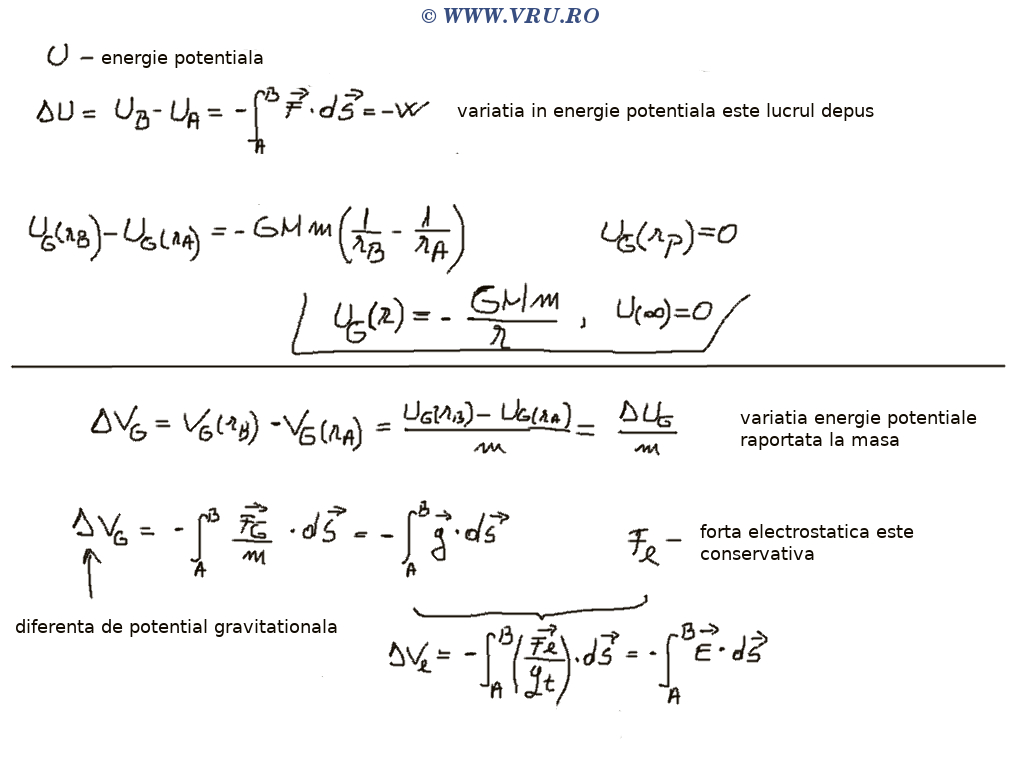 © WWW.VRU.RO
U – energie potentiala
ΔU = U_B - U_A = -∫_A^B F⃗ · dS⃗ = -W variatia in energie potentiala este lucrul depus
U_G(r_B) - U_G(r_A) = -GMm(1/r_B - 1/r_A) U_G(r_P) = 0
U_G(r) = - GMm/r , U(∞) = 0
ΔV_G = V_G(r_B) - V_G(r_A) = (U_G(r_B) - U_G(r_A))/m = ΔU_G/m variatia energie potentiale
raportata la masa
ΔV_G = -∫_A^B F⃗_G/m · dS⃗ = -∫_A^B g⃗ · dS⃗ F_e – forta electrostatica este
conservativa
diferenta de potential gravitationala
ΔV_e = -∫_A^B (F⃗_e/q_t) · dS⃗ = -∫_A^B E⃗ · dS⃗